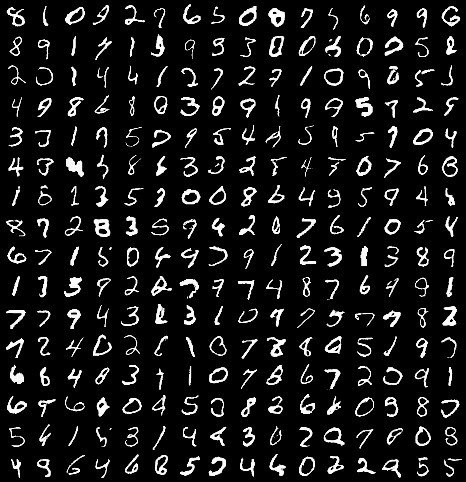 8 1 0 9 2 9 6 5 0 8 7 5 6 9 9 6
8 9 1 7 1 3 9 3 3 0 0 6 0 0 5 8
2 0 1 4 4 1 2 7 2 7 1 0 9 8 5 1
4 9 8 6 8 0 3 8 9 1 9 9 5 7 2 9
3 3 1 9 5 0 9 5 4 4 5 9 5 9 0 4
4 3 4 5 8 6 3 3 2 8 4 3 0 7 6 8
1 8 1 3 5 3 0 0 8 6 4 9 5 9 4 6
8 7 2 8 3 5 9 4 2 0 7 6 1 0 5 4
6 7 1 5 0 4 9 7 9 1 2 3 1 3 8 9
1 3 3 9 2 2 7 9 7 4 8 7 6 4 9 1
7 7 9 4 3 2 3 1 0 9 7 5 7 7 8 2
7 2 4 0 2 1 1 0 7 8 8 4 5 1 9 7
6 6 4 8 3 9 1 0 7 8 6 7 2 0 9 1
6 9 6 8 0 4 5 0 8 2 6 6 0 9 8 7
5 6 1 5 3 1 9 4 3 0 2 2 7 8 0 8
4 9 6 4 6 8 5 7 4 6 0 2 2 9 5 5